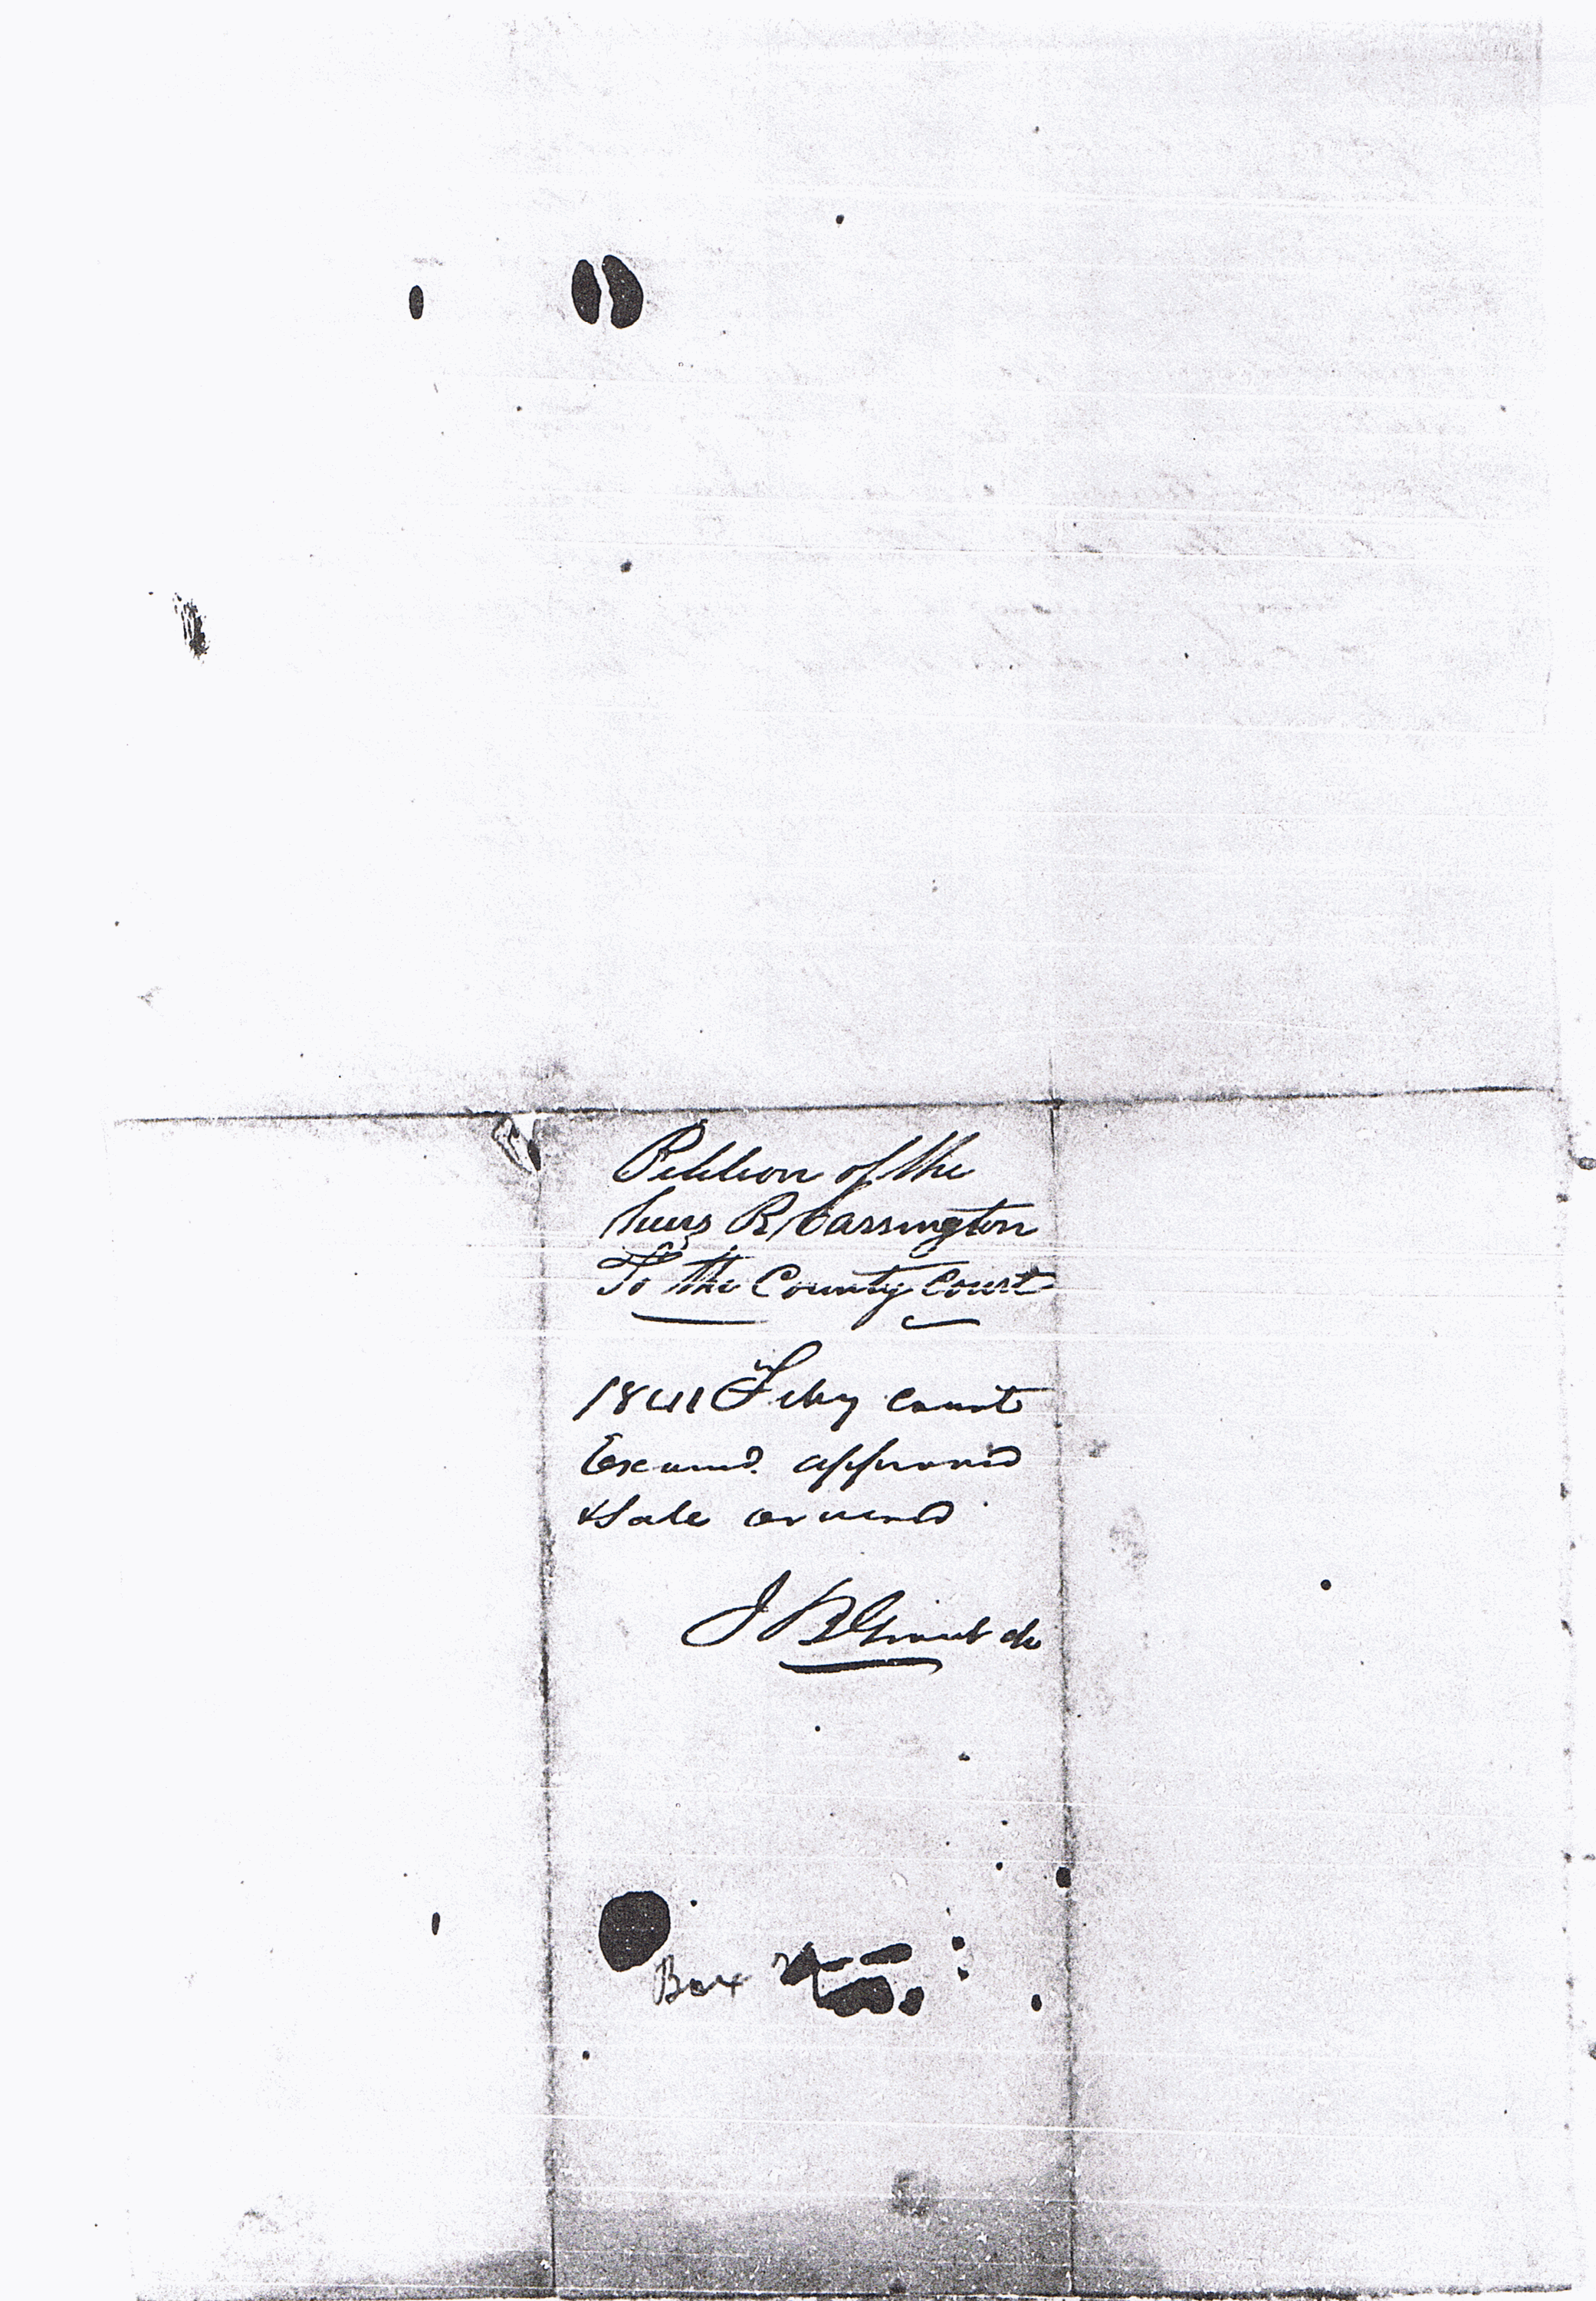 Petition of the
heirs R Carrington
To the County Court
1841 Feby Court
Examd. approved
& Sale ordered
J B
Box